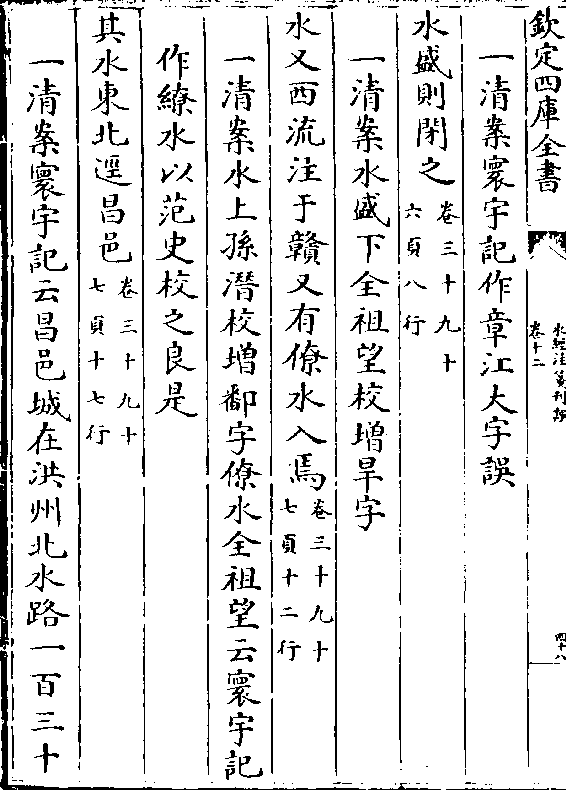 欽定四庫全書
水經注箋刊誤
卷十二
四十八
一清案寰宇記作章江大字誤
水盛則閉之卷三十九十六頁八行
一清案水盛下全祖望校增旱字
水又西流注于贛又有僚水入焉卷三十九十七頁十二行
一清案水上孫潛校增鄱字僚水全祖望云寰宇記
作繚水以范史校之良是
其水東北逕昌邑卷三十九十七頁十七行
一清案寰宇記云昌邑城在洪州北水路一百三十